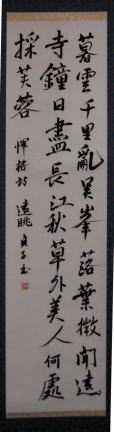 暮雲千里亂吴峯落葉微聞遠
寺鐘日盡長江秋草外美人何處
採芙蓉
惲格詩 遠眺 貞子書